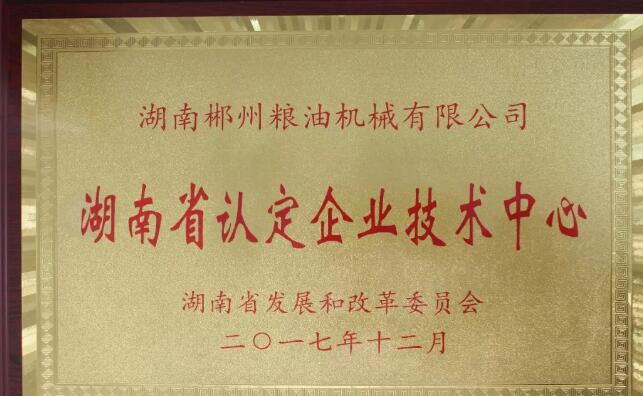 湖南郴州粮油机械有限公司
湖南省认定企业技术中心
湖南省发展和改革委员会
二〇一七年十二月